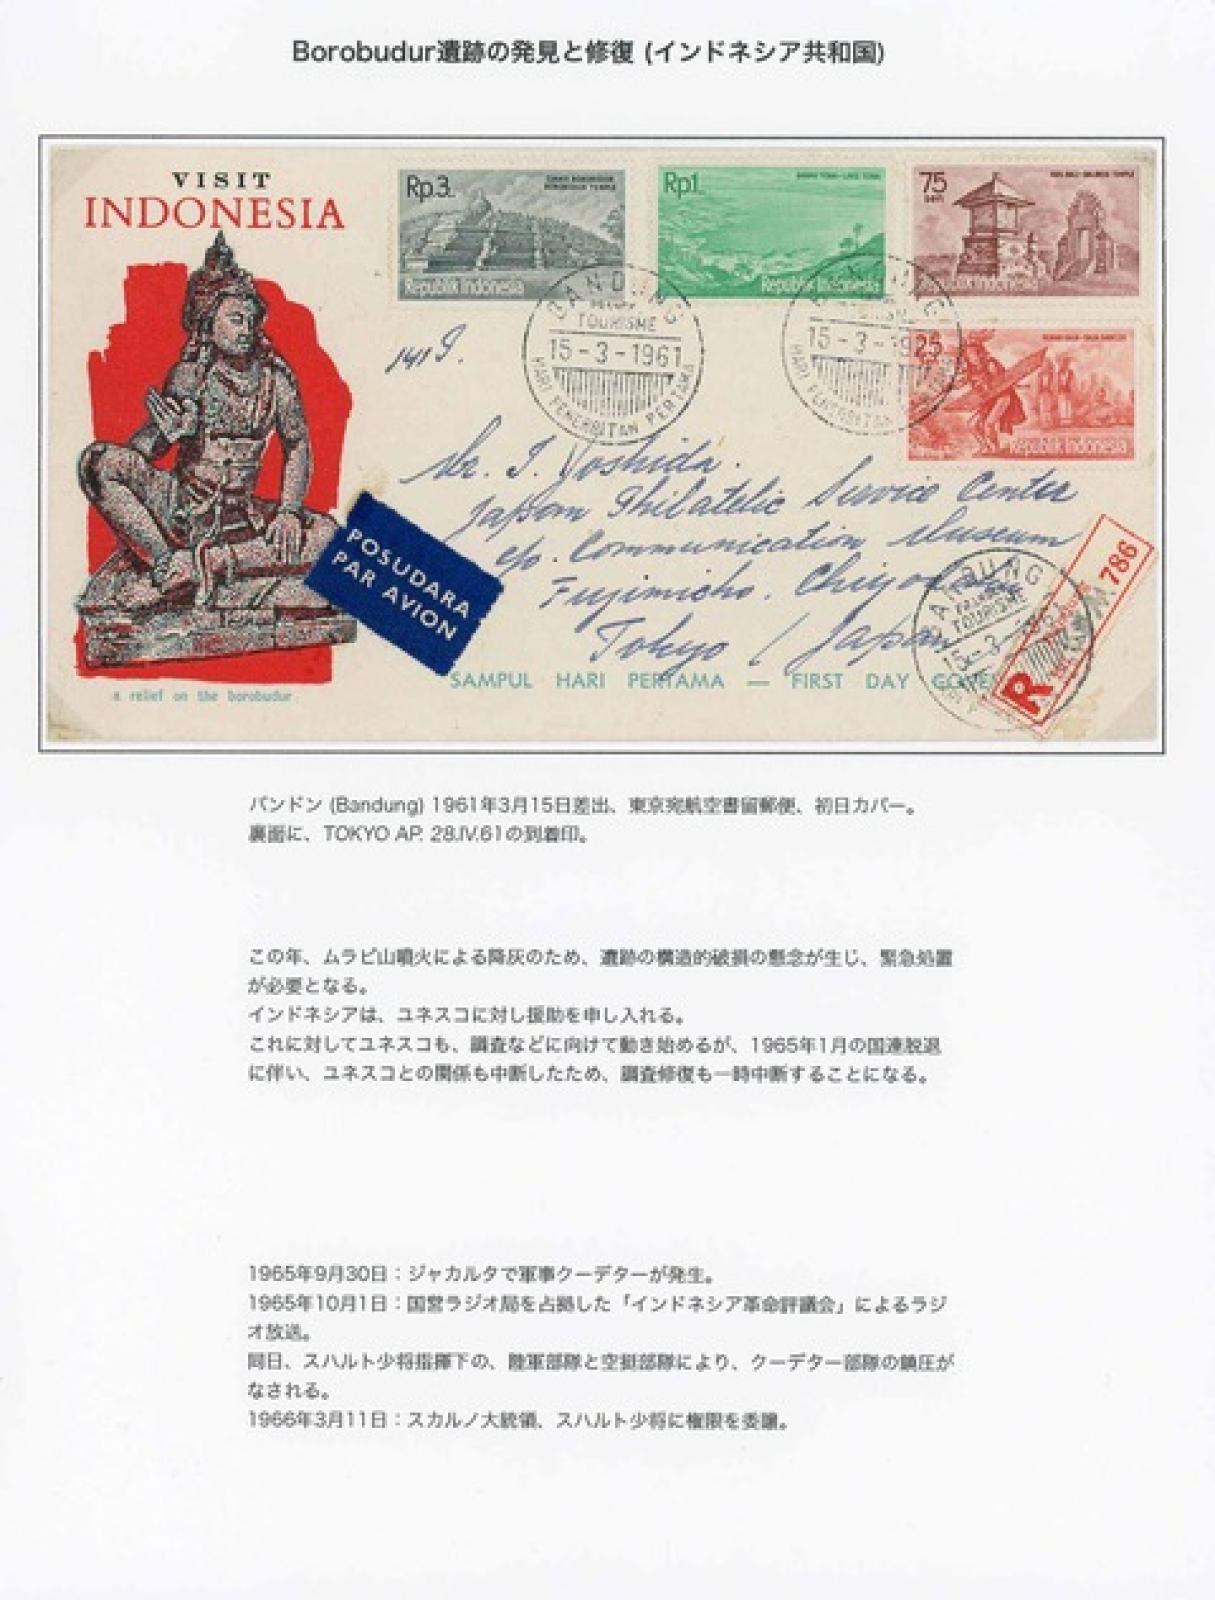 Borobudur遺跡の発見と修復 (インドネシア共和国)
VISIT
INDONESIA
Rp.3.
CANDI BOROBUDUR
BOROBUDUR TEMPLE
Republik Indonesia
Rp1.
Republik Indonesia
75
sen
Republik Indonesia
Republik Indonesia
BANDUNG
TOURISME
15-3-1961
HARI PENERBITAN PERTAMA
15-3-19
Mr. I. Yoshida.
Japan Philatelic Service Center
c/o. Communication Museum
Fujimicho. Chiyo
Tokyo / Japan
POSUDARA
PAR AVION
BANDUNG
TOURISME
R
786
a relief on the borobudur
SAMPUL HARI PERTAMA — FIRST DAY COVE
バンドン (Bandung) 1961年3月15日差出、東京宛航空書留郵便、初日カバー。
裏面に、TOKYO AP. 28.IV.61の到着印。
この年、ムラピ山噴火による降灰のため、遺跡の構造的破損の懸念が生じ、緊急処置
が必要となる。
インドネシアは、ユネスコに対し援助を申し入れる。
これに対してユネスコも、調査などに向けて動き始めるが、1965年1月の国連脱退
に伴い、ユネスコとの関係も中断したため、調査修復も一時中断することになる。
1965年9月30日：ジャカルタで軍事クーデターが発生。
1965年10月1日：国営ラジオ局を占拠した「インドネシア革命評議会」によるラジ
オ放送。
同日、スハルト少将指揮下の、陸軍部隊と空挺部隊により、クーデター部隊の鎮圧が
なされる。
1966年3月11日：スカルノ大統領、スハルト少将に権限を委譲。